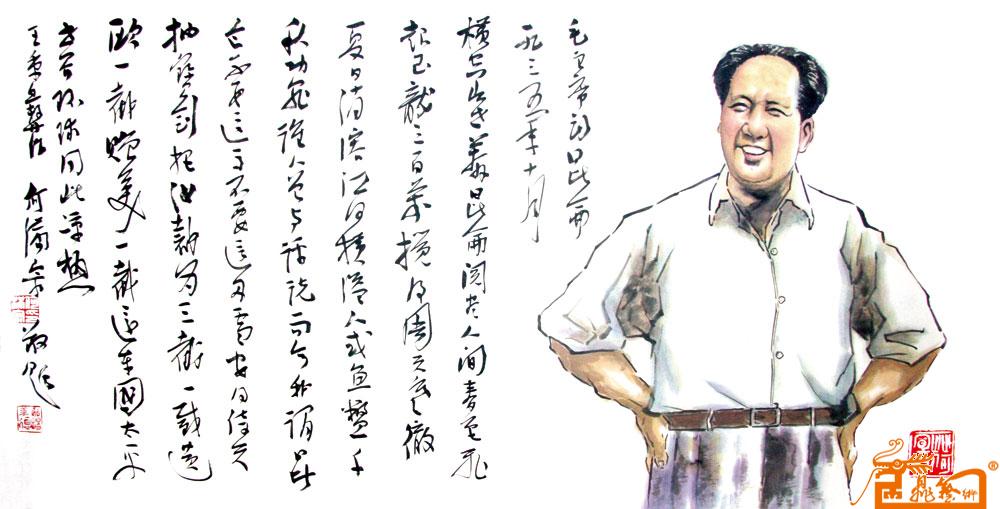 毛主席词昆仑
一九三五年十月
横空出世莽昆仑阅尽人间春色飞
起玉龍三百万搅得周天寒徹
夏日消溶江河横溢人或鱼鳖千
秋功罪谁人曾与评说而今我谓昆
仑不要这高不要这多雪安得倚天
抽宝剑把汝裁为三截一截遗
欧一截赠美一截还东國太平
世界环球同此凉热
何满宗
敬题